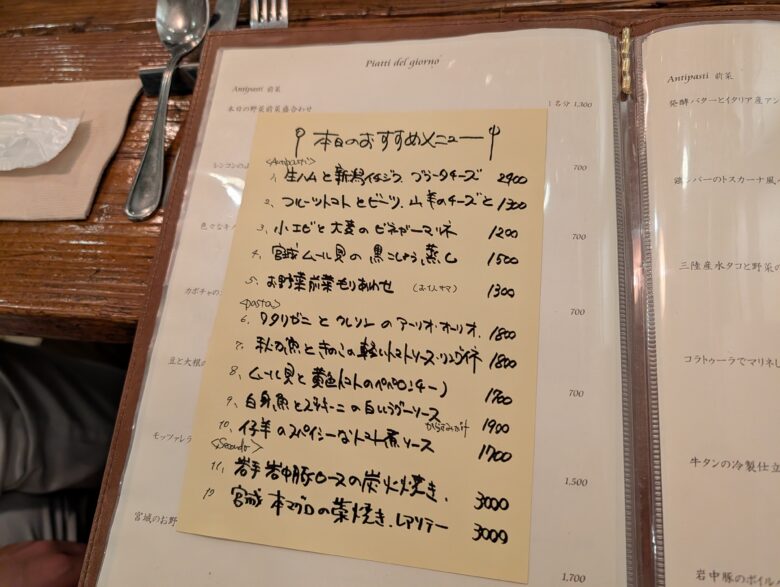 Piatti del giorno
Antipasti 前菜
本日の野菜前菜盛合わせ
1名分 1,300
700
700
700
700
1,500
1,700
本日のおすすめメニュー
<Antipasti>
1, 生ハムと新潟イチジク、ブラータチーズ 2400
2, フルーツトマトとビーツ、山羊のチーズと 1300
3, 小エビと大麦のビネガーマリネ 1200
4, 宮城ムール貝の黒こしょう蒸し 1500
5, お野菜前菜もりあわせ (お1人サマ) 1300
<pasta>
6, ワタリガニとケレソレのアーリオ・オーリオ. 1800
7, 秋刀魚ときのこの軽いトマトソース・リングイネ 1800
8, ムール貝と黄色トマトのペペロンチーノ 1700
9, 白身魚とズッキーニの白いラグーソース 1900
からすみがけ
10, 仔羊のスパイシーなトマト煮ソース 1700
<Secondo>
11, 岩手 岩中豚ロースの炭火焼き. 3000
12 宮城 本マグロの藁焼き、レアソテー 3000
レンコンの
色々なキノ
カボチャの
豆と大根の
モッツァレラ
宮城のお野
Antipasti 前菜
発酵バターとイタリア産アン
鶏レバーのトスカーナ風
三陸産水タコと野菜の
コラトゥーラでマリネし
牛タンの冷製仕立
岩中豚のボイル